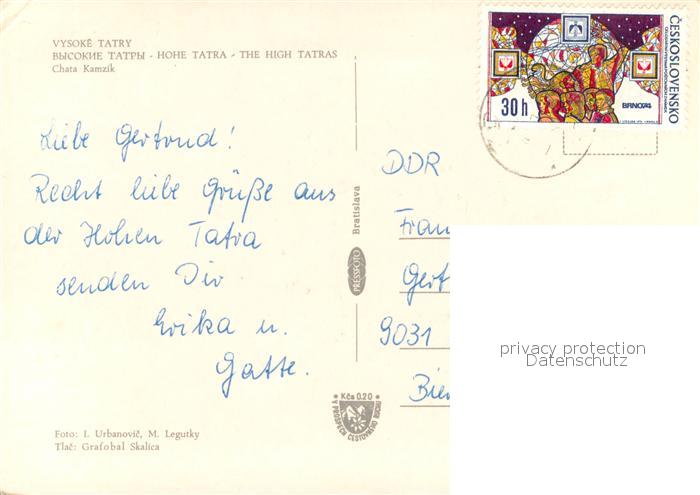 VYSOKÉ TATRY
ВЫСОКИЕ ТАТРЫ - HOHE TATRA - THE HIGH TATRAS
Chata Kamzík
Liebe Gertrud!
Recht liebe Grüße aus
der Hohen Tatra
senden Dir
Erika u.
Gatte.
Foto: I. Urbanovič, M. Legutky
Tlač: Grafobal Skalica
PRESSFOTO Bratislava
Kčs 0.20
V PROSPĚCH CESTOVNÉHO RUCHU
ČESKOSLOVENSKO
30 h
BRNO74
DDR
Gert
9031
privacy protection
Datenschutz